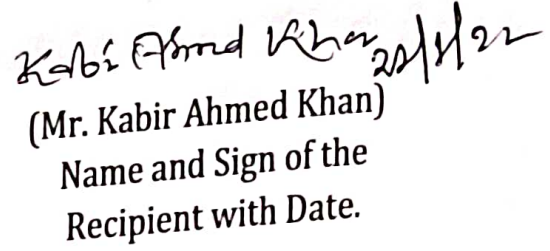 Kabir Ahmed Khan 22/1/22
(Mr. Kabir Ahmed Khan)
Name and Sign of the
Recipient with Date.